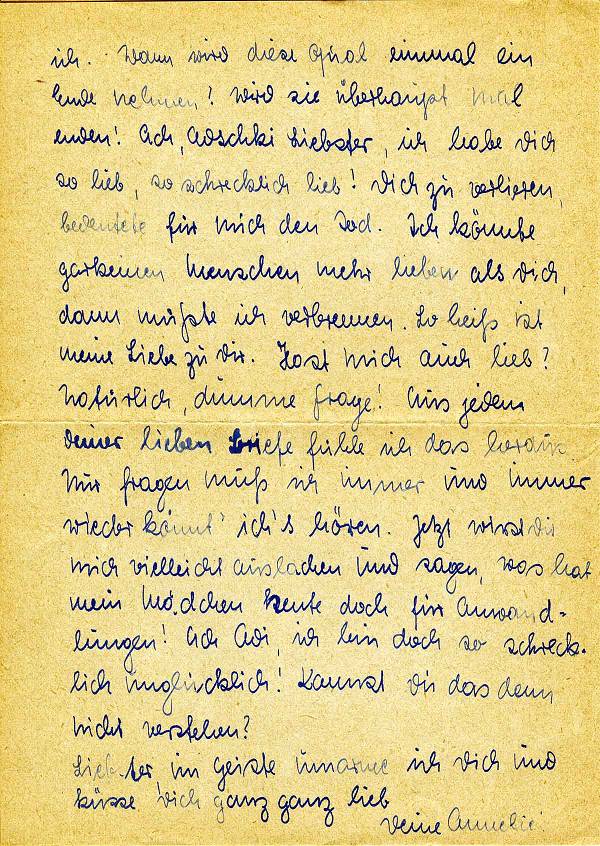 ich. Wann wird diese Qual einmal ein
Ende nehmen? Wird sie überhaupt mal
enden! Ach, Adschki Liebster, ich habe Dich
so lieb, so schrecklich lieb! Dich zu verlieren,
bedeutete für mich den Tod. Ich könnte
garkeinen Menschen mehr lieben als Dich,
dann müßte ich verbrennen. So heiß ist
meine Liebe zu Dir. Hast mich auch lieb?
Natürlich, dumme Frage! Aus jedem
Deiner lieben Briefe fühle ich das heraus
Nur fragen muß ich immer und immer
wieder könnt' ich's hören. Jetzt wirst Du
mich vielleicht auslachen und sagen, was hat
mein Mädchen heute doch für Anwand-
lungen! Ach Adi, ich bin doch so schreck-
lich unglücklich! Kannst Du das denn
nicht verstehen?
Liebster, im Geiste umarme ich Dich und
küsse Dich ganz ganz lieb
Deine Annelie